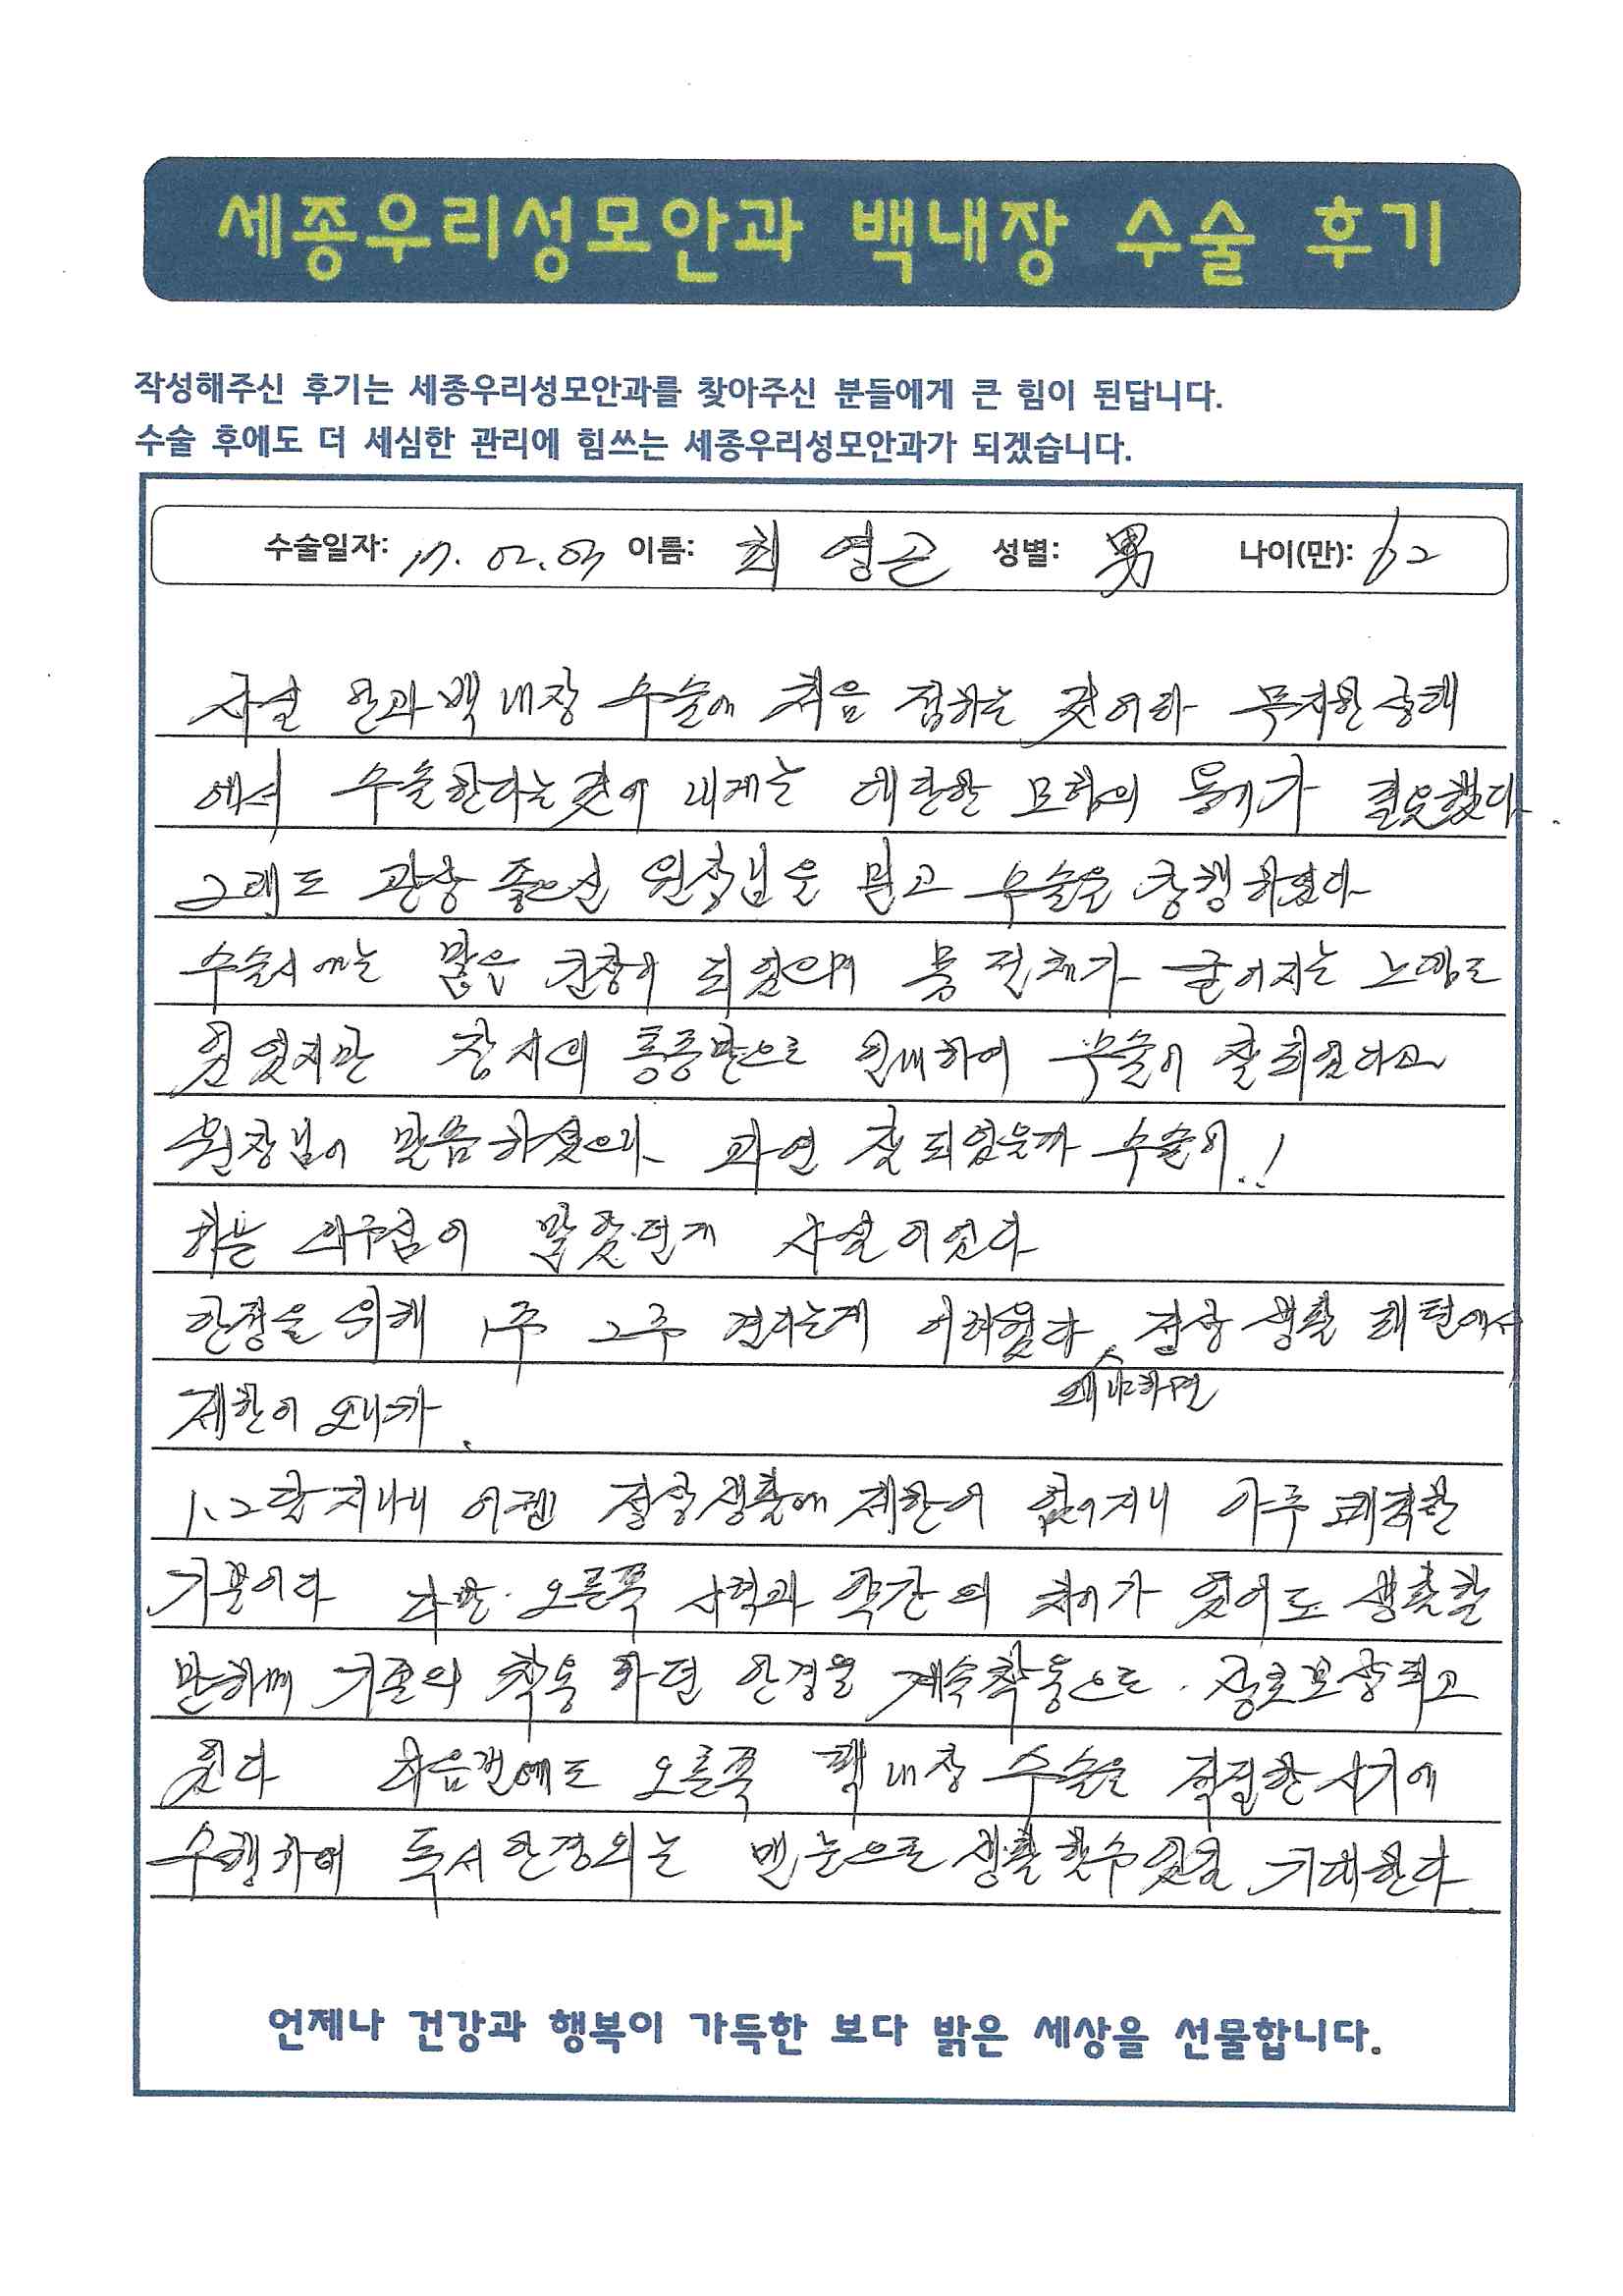 세종우리성모안과 백내장 수술 후기
작성해주신 후기는 세종우리성모안과를 찾아주신 분들에게 큰 힘이 된답니다.
수술 후에도 더 세심한 관리에 힘쓰는 세종우리성모안과가 되겠습니다.
수술일자: 17. 02. 03 이름: 최영근 성별: 男 나이(만): 62
사실 안과백내장 수술에 처음 접하는 것이라 무지한 상태
에서 수술한다는것이 내게는 대단한 모험의 용기가 필요했다
그래도 관상 좋으신 원장님을 믿고 수술을 강행하였다
수술시에는 많은 긴장이 되었으며 몸 전체가 굳어지는 느낌도
있었지만 잠시의 통증만으로 인내하여 수술이 잘되었다고
원장님이 말씀하셨으나 과연 잘되었을까 수술이.!
하는 의구심이 많았던게 사실이었다
안정을 위해 1주 2주 견디는게 어려웠다 왜냐하면 일상생활 패턴에서
제한이 오니까.
1.2달지나니 이젠 일상생활에 제한이 없어지니 아주 쾌적한
기분이다 다만 오른쪽 시력과 약간의 차이가 있어도 생활할
만하며 기존의 착용하던 안경을 계속착용으로 상호보상되고
있다 다음번에도 오른쪽 백내장 수술을 적절한시기에
수행하여 독서안경외는 맨눈으로 생활할수있길 기대한다.
언제나 건강과 행복이 가득한 보다 밝은 세상을 선물합니다.